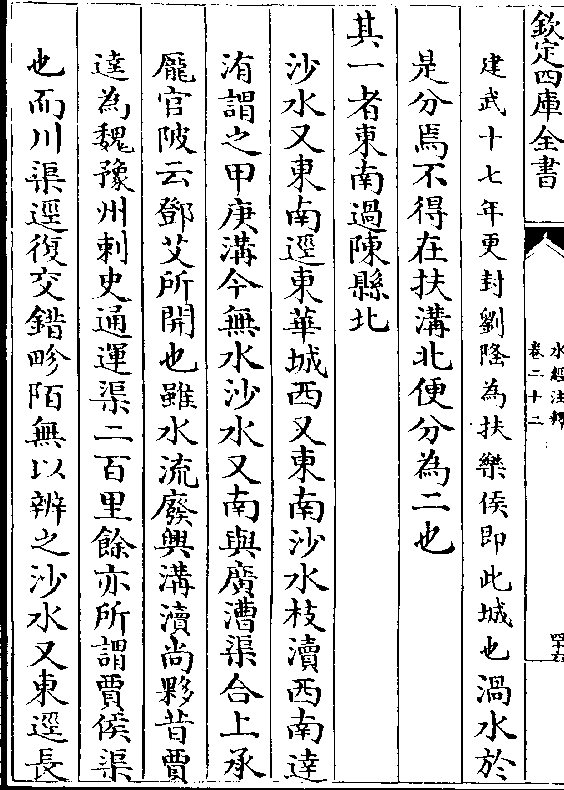 欽定四庫全書
水經注釋
卷二十二
建武十七年更封劉隆為扶樂侯即此城也渦水於
是分焉不得在扶溝北便分為二也
其一者東南過陳縣北
沙水又東南逕東華城西又東南沙水枝瀆西南達
洧謂之甲庚溝今無水沙水又南與廣漕渠合上承
龐官陂云鄧艾所開也雖水流廢興溝瀆尚夥昔賈
逵為魏豫州刺史通運渠二百里餘亦所謂賈侯渠
也而川渠逕復交錯畛陌無以辨之沙水又東逕長